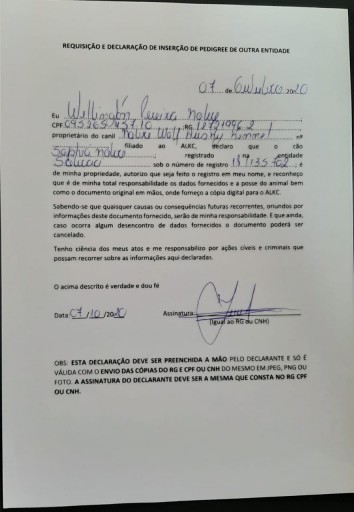 REQUISIÇÃO E DECLARAÇÃO DE INSERÇÃO DE PEDIGREE DE OUTRA ENTIDADE
07 de Outubro 2020
Eu Wellington Pereira Nobre,
CPF RG
proprietário do canil Nobre Wolf Husky Kennel nº
filiado ao ALKC, declaro que o cão
Sophia Nobre, registrado na entidade
Sobraci sob o número de registro é
de minha propriedade, autorizo que seja feito o registro em meu nome, e reconheço
que é de minha total responsabilidade os dados fornecidos e a posse do animal bem
como o documento original em mãos, onde forneço a cópia digital para o ALKC.
Sabendo-se que quaisquer causas ou consequências futuras recorrentes, oriundos por
informações deste documento fornecido, serão de minha responsabilidade. E que ainda,
caso ocorra algum desencontro de dados fornecidos o documento poderá ser
cancelado.
Tenho ciência dos meus atos e me responsabilizo por ações cíveis e criminais que
possam recorrer sobre as informações aqui declaradas.
O acima descrito é verdade e dou fé
Data: 07/10/2020 Assinatura:
(Igual ao RG ou CNH)
OBS: ESTA DECLARAÇÃO DEVE SER PREENCHIDA A MÃO PELO DECLARANTE E SÓ É
VÁLIDA COM O ENVIO DAS CÓPIAS DO RG E CPF OU CNH DO MESMO EM JPEG, PNG OU
FOTO. A ASSINATURA DO DECLARANTE DEVE SER A MESMA QUE CONSTA NO RG CPF
OU CNH.